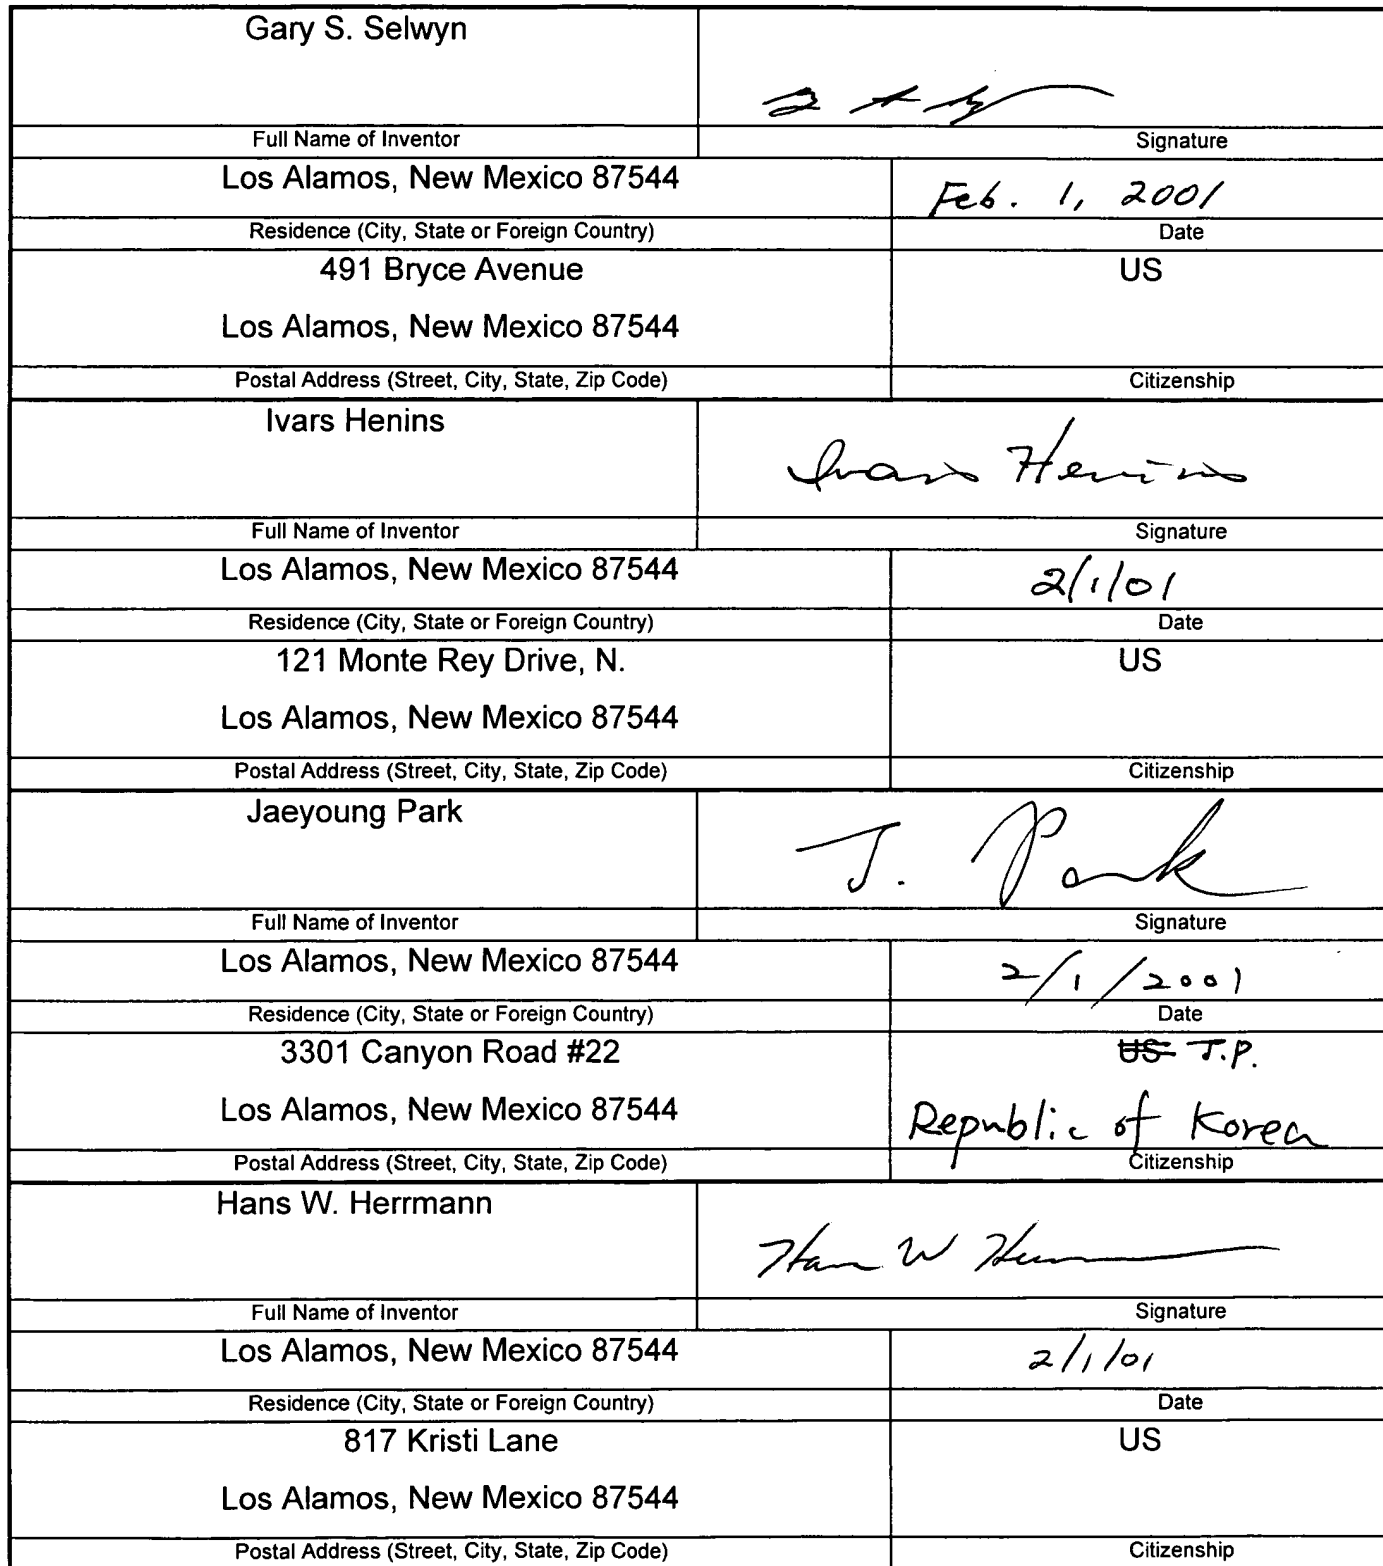 Gary S. Selwyn
Full Name of Inventor Signature
Los Alamos, New Mexico 87544 Feb. 1, 2001
Residence (City, State or Foreign Country) Date
491 Bryce Avenue US
Los Alamos, New Mexico 87544
Postal Address (Street, City, State, Zip Code) Citizenship
Ivars Henins Ivars Henins
Full Name of Inventor Signature
Los Alamos, New Mexico 87544 2/1/01
Residence (City, State or Foreign Country) Date
121 Monte Rey Drive, N. US
Los Alamos, New Mexico 87544
Postal Address (Street, City, State, Zip Code) Citizenship
Jaeyoung Park J. Park
Full Name of Inventor Signature
Los Alamos, New Mexico 87544 2/1/2001
Residence (City, State or Foreign Country) Date
3301 Canyon Road #22 US J.P.
Los Alamos, New Mexico 87544 Republic of Korea
Postal Address (Street, City, State, Zip Code) Citizenship
Hans W. Herrmann Hans W Herrmann
Full Name of Inventor Signature
Los Alamos, New Mexico 87544 2/1/01
Residence (City, State or Foreign Country) Date
817 Kristi Lane US
Los Alamos, New Mexico 87544
Postal Address (Street, City, State, Zip Code) Citizenship